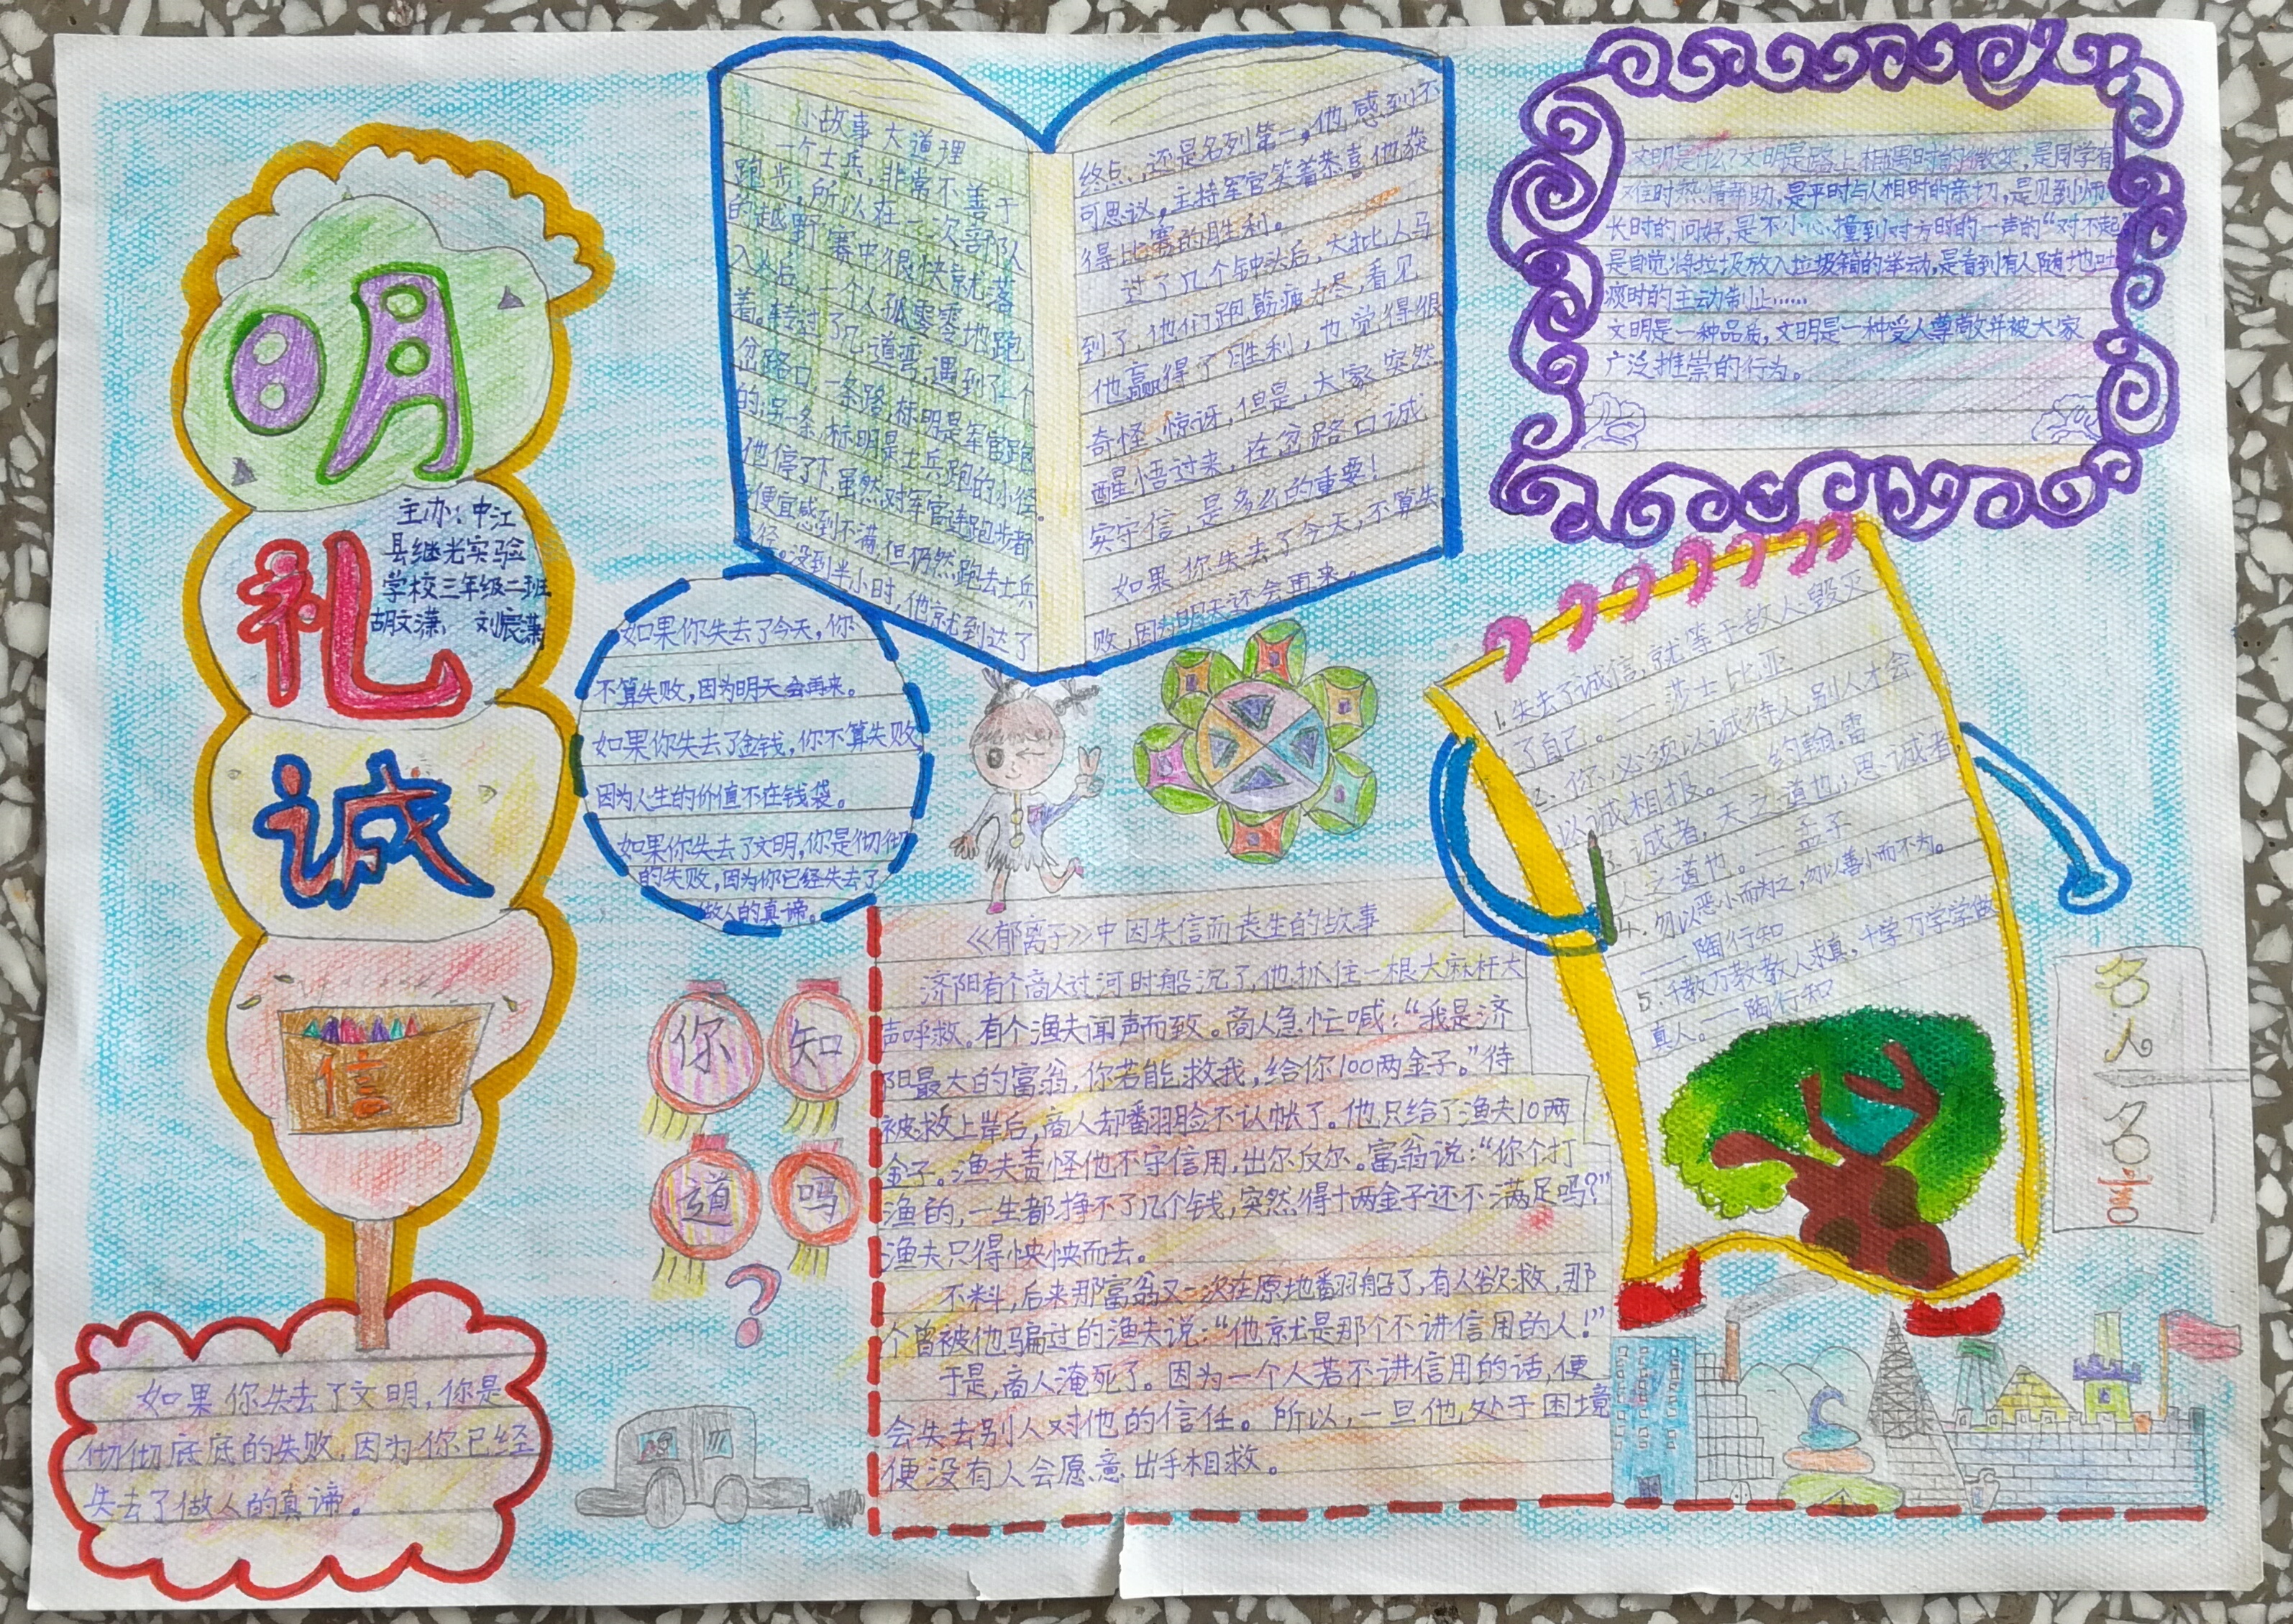 明
礼
诚
信
主办：中江
县继光实验
学校三年级二班
胡文潇，刘宸潇
如果你失去了文明，你是
彻彻底底的失败，因为你已经
失去了做人的真谛。
小故事 大道理
一个士兵，非常不善于
跑步，所以在一次部队
的越野赛中很快就落
入人后，一个人孤零零地跑
着。转过了几道弯，遇到了一个
岔路口，一条路，标明是军官跑
的；另一条，标明是士兵跑的小径。
他停了下，虽然对军官连跑步者都
便宜感到不满，但仍然跑去士兵
径。没到半小时，他就到达了
终点，还是名列第一，他感到不
可思议，主持军官笑着恭喜他获
得比赛的胜利。
过了几个钟头后，大批人马
到了，他们跑筋疲力尽，看见
他赢得了胜利，也觉得很
奇怪、惊讶，但是，大家突然
醒悟过来，在岔路口诚
实守信，是多么的重要！
如果你失去了今天，不算失
败，因为明天还会再来。
如果你失去了今天，你
不算失败，因为明天会再来。
如果你失去了金钱，你不算失败，
因为人生的价值不在钱袋。
如果你失去了文明，你是彻彻
的失败，因为你已经失去了
做人的真谛。
文明是什么？文明是路上相遇时的微笑，是同学有
难时热情帮助，是平时与人相时的亲切，是见到师
长时的问好，是不小心撞到对方时的一声的“对不起”
是自觉将垃圾放入垃圾箱的举动，是看到有人随地吐
痰时的主动制止……
文明是一种品质，文明是一种受人尊敬并被大家
广泛推崇的行为。
1.失去了诚信，就等于敌人毁灭
了自己。——莎士比亚
2、你必须以诚待人，别人才会
以诚相报。——约翰·雷
3.诚者，天之道也；思诚者，
人之道也。—孟子
4.勿以恶小而为之，勿以善小而不为。
——陶行知
5.千教万教教人求真，千学万学学做
真人。—陶行知
名人名言
你知
道吗
?
《郁离子》中因失信而丧生的故事
济阳有个商人过河时船沉了，他抓住一根大麻杆大
声呼救。有个渔夫闻声而致。商人急忙喊：“我是济
阳最大的富翁，你若能救我，给你100两金子。”待
被救上岸后，商人却翻脸不认帐了。他只给了渔夫10两
金子。渔夫责怪他不守信用，出尔反尔。富翁说：“你个打
渔的，一生都挣不了几个钱，突然得十两金子还不满足吗？”
渔夫只得怏怏而去。
不料，后来那富翁又一次在原地翻船了，有人欲救，那
个曾被他骗过的渔夫说：“他就是那个不讲信用的人！”
于是，商人淹死了。因为一个人若不讲信用的话，便
会失去别人对他的信任。所以，一旦他处于困境
便没有人会愿意出手相救。